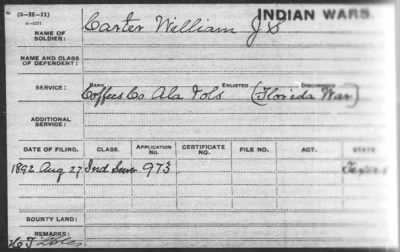 (3-H-11)
INDIAN WARS.
NAME OF SOLDIER: Carter William J S
NAME AND CLASS OF DEPENDENT:
RANK ENLISTED DISCHARGED
SERVICE: Coffees Co Ala Vols (Florida War)
ADDITIONAL SERVICE:
DATE OF FILING. CLASS. APPLICATION No. CERTIFICATE NO. FILE NO. ACT. STATE
1892 Aug 27 Ind Surv 973 Texas
BOUNTY LAND:
REMARKS: